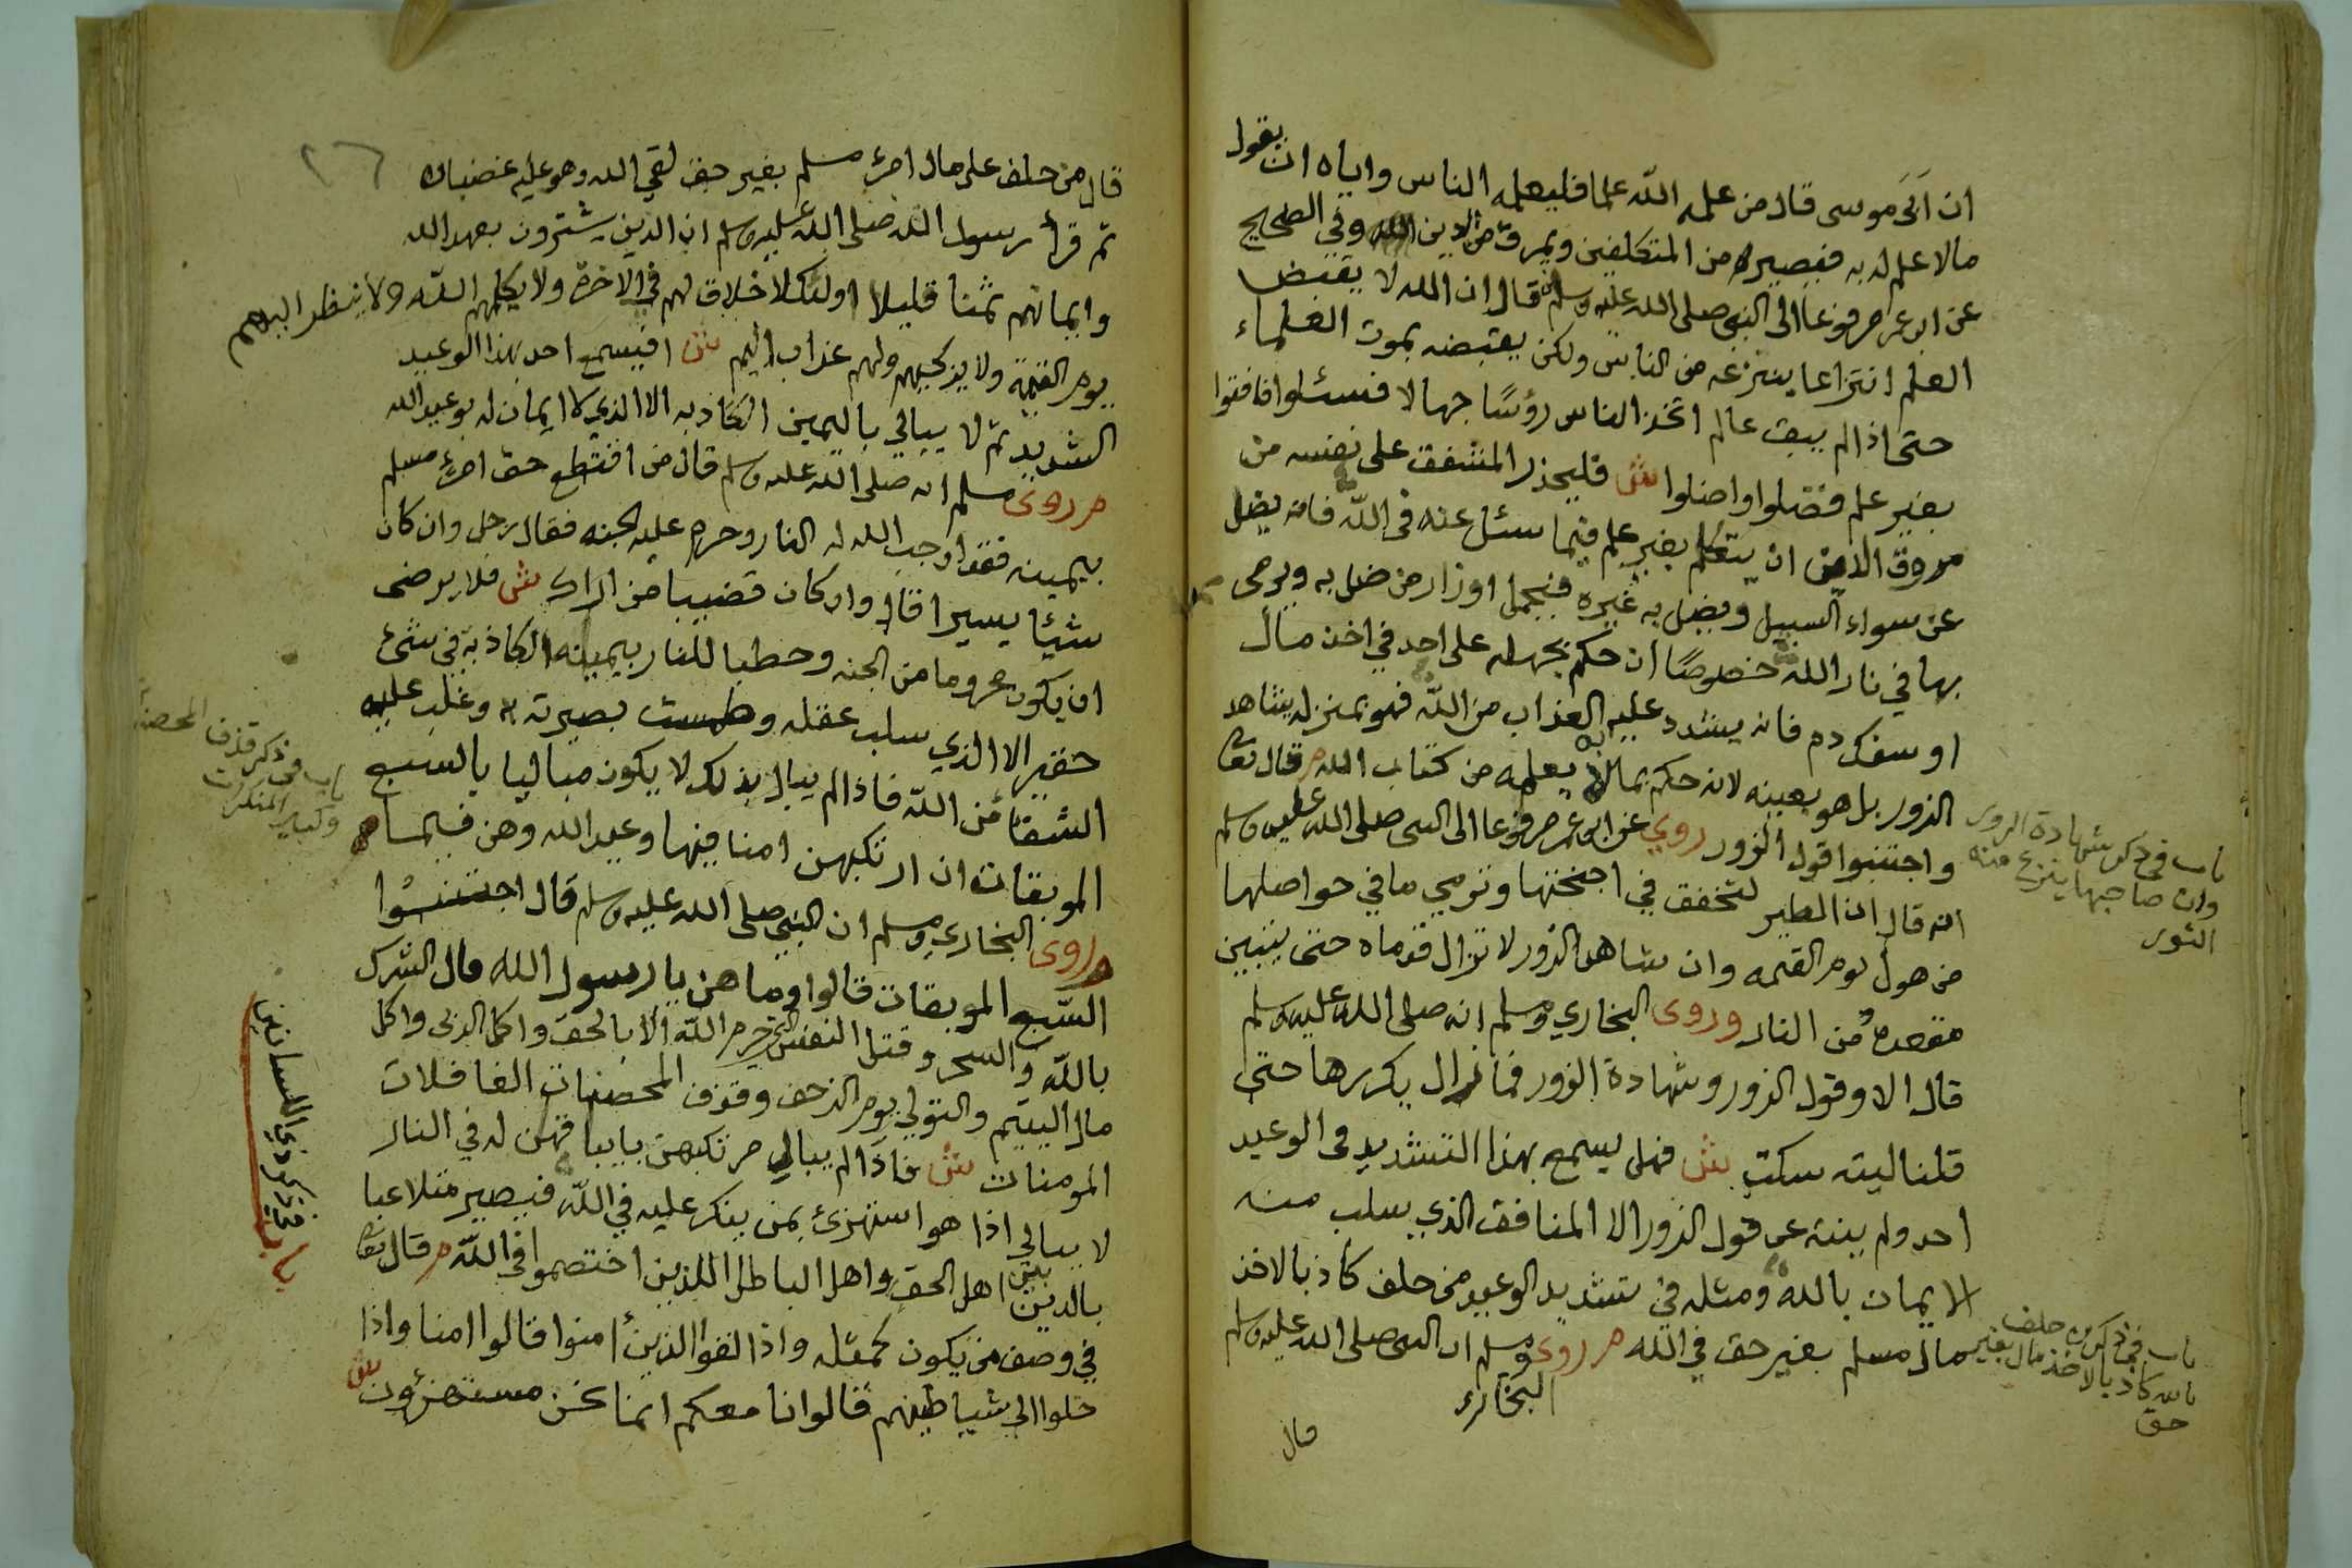 ان ابى موسى قال من علمه الله علما فليعلمه الناس واياه ان يقول
مالا علم له به فيصير من المتكلفين ويمرق من الدين وفي الصحيح
عن ابن عمر مرفوعا الى النبي صلى الله عليه وسلم قال ان الله لا يقبض
العلم انتزاعا ينتزعه من الناس ولكن يقبضه بموت العلماء
حتى اذا لم يبق عالم اتخذ الناس رؤسًا جهالا فسئلوا فافتوا
بغير علم فضلوا واضلوا ش فليحذر المشفق على نفسه من
مروق الدين ان يتكلم بغير علم فيما سئل عنه في الله فانه يضل
عن سواء السبيل ويضل به غيره فيحمل اوزار من ضل به ويرمى
بها في نار الله خصوصًا ان حكم بجهله على احد في اخذ مال
او سفك دم فانه يشدد عليه العذاب من الله فهو بمنزلة شاهد
الزور بل هو بعينه لانه حكم بما لا يعلمه من كتاب الله م قال تعا
واجتنبوا قول الزور روي عن ابن عمر مرفوعا الى النبى صلى الله عليه وسلم
انه قال ان الطير لتخفق في اجنحتها وترمي ما في حواصلها
من هول يوم القيمه وان شاهد الزور لا تزال قدماه حتى يتبين
مقعده من النار وروى البخاري ومسلم انه صلى الله عليه وسلم
قال الا وقول الزور وشهادة الزور فما زال يكررها حتى
قلنا ليته سكت ش فهل يسمع بهذا التشديد في الوعيد
احد ولم ينته عن قول الزور الا المنافق الذي سلب منه
الايمان بالله ومثله في تشديد الوعيد من حلف كاذبا لاخذ
مال مسلم بغير حق في الله م روى البخارى ومسلم ان النبى صلى الله عليه وسلم
قال
باب في ذكر شهادة الزور
وان صاحبها ينزع منه
النور
باب في ذكر من حلف
بالله كاذبا لاخذ مال بغير
حق
٢٦
قال من حلف على مال امرئ مسلم بغير حق لقي الله وهو عليه غضبان
ثم قرأ رسول الله صلى الله عليه وسلم ان الذين يشترون بعهد الله
وايمانهم ثمنا قليلا اولئك لا خلاق لهم في الاخرة ولا يكلمهم الله ولا ينظر اليهم
يوم القيمة ولا يزكيهم ولهم عذاب اليم ش افيسمع احد بهذا الوعيد
الشديد ثم لا يبالي باليمين الكاذبه الا الذي لا ايمان له بوعيد الله
م روى مسلم انه صلى الله عليه وسلم قال من اقتطع حق امرئ مسلم
بيمينه فقد اوجب الله له النار وحرم عليه الجنه فقال رجل وان كان
شيئا يسيرا قال وان كان قضيبا من اراك ش فلا يرضى
ان يكون محروما من الجنه وحطبا للنار بيمينه الكاذبة في شئ
حقير الا الذي سلب عقله وطمست بصيرته وغلب عليه
الشقا من الله فاذا لم يبال بذلك لا يكون مباليا بالسبع
الموبقات ان ارتكبهن امنا فيها وعيد الله وهن فيما
وروى البخاري ومسلم ان النبي صلى الله عليه وسلم قال اجتنبوا
السبع الموبقات قالوا وما هن يا رسول الله قال الشرك
بالله والسحر وقتل النفس التي حرم الله الا بالحق واكل الربى واكل
مال اليتيم والتولي يوم الزحف وقذف المحصنات الغافلات
المومنات ش فاذا لم يبالي مرتكبهن بايبا فهن له في النار
لا يبالي اذا هو استهزئ بمن ينكر عليه في الله فيصير متلاعبا
بالدين بين اهل الحق واهل الباطل اللذين اختصموا في الله م قال تعا
في وصف من يكون كمثله واذا لقوا الذين امنوا قالوا امنا واذا
خلوا الى شياطينهم قالوا انا معكم انما نحن مستهزؤن ش
باب في ذكر قذف المحصنات
وكباير المنكرات
باب في ذكر ذي اللسانين